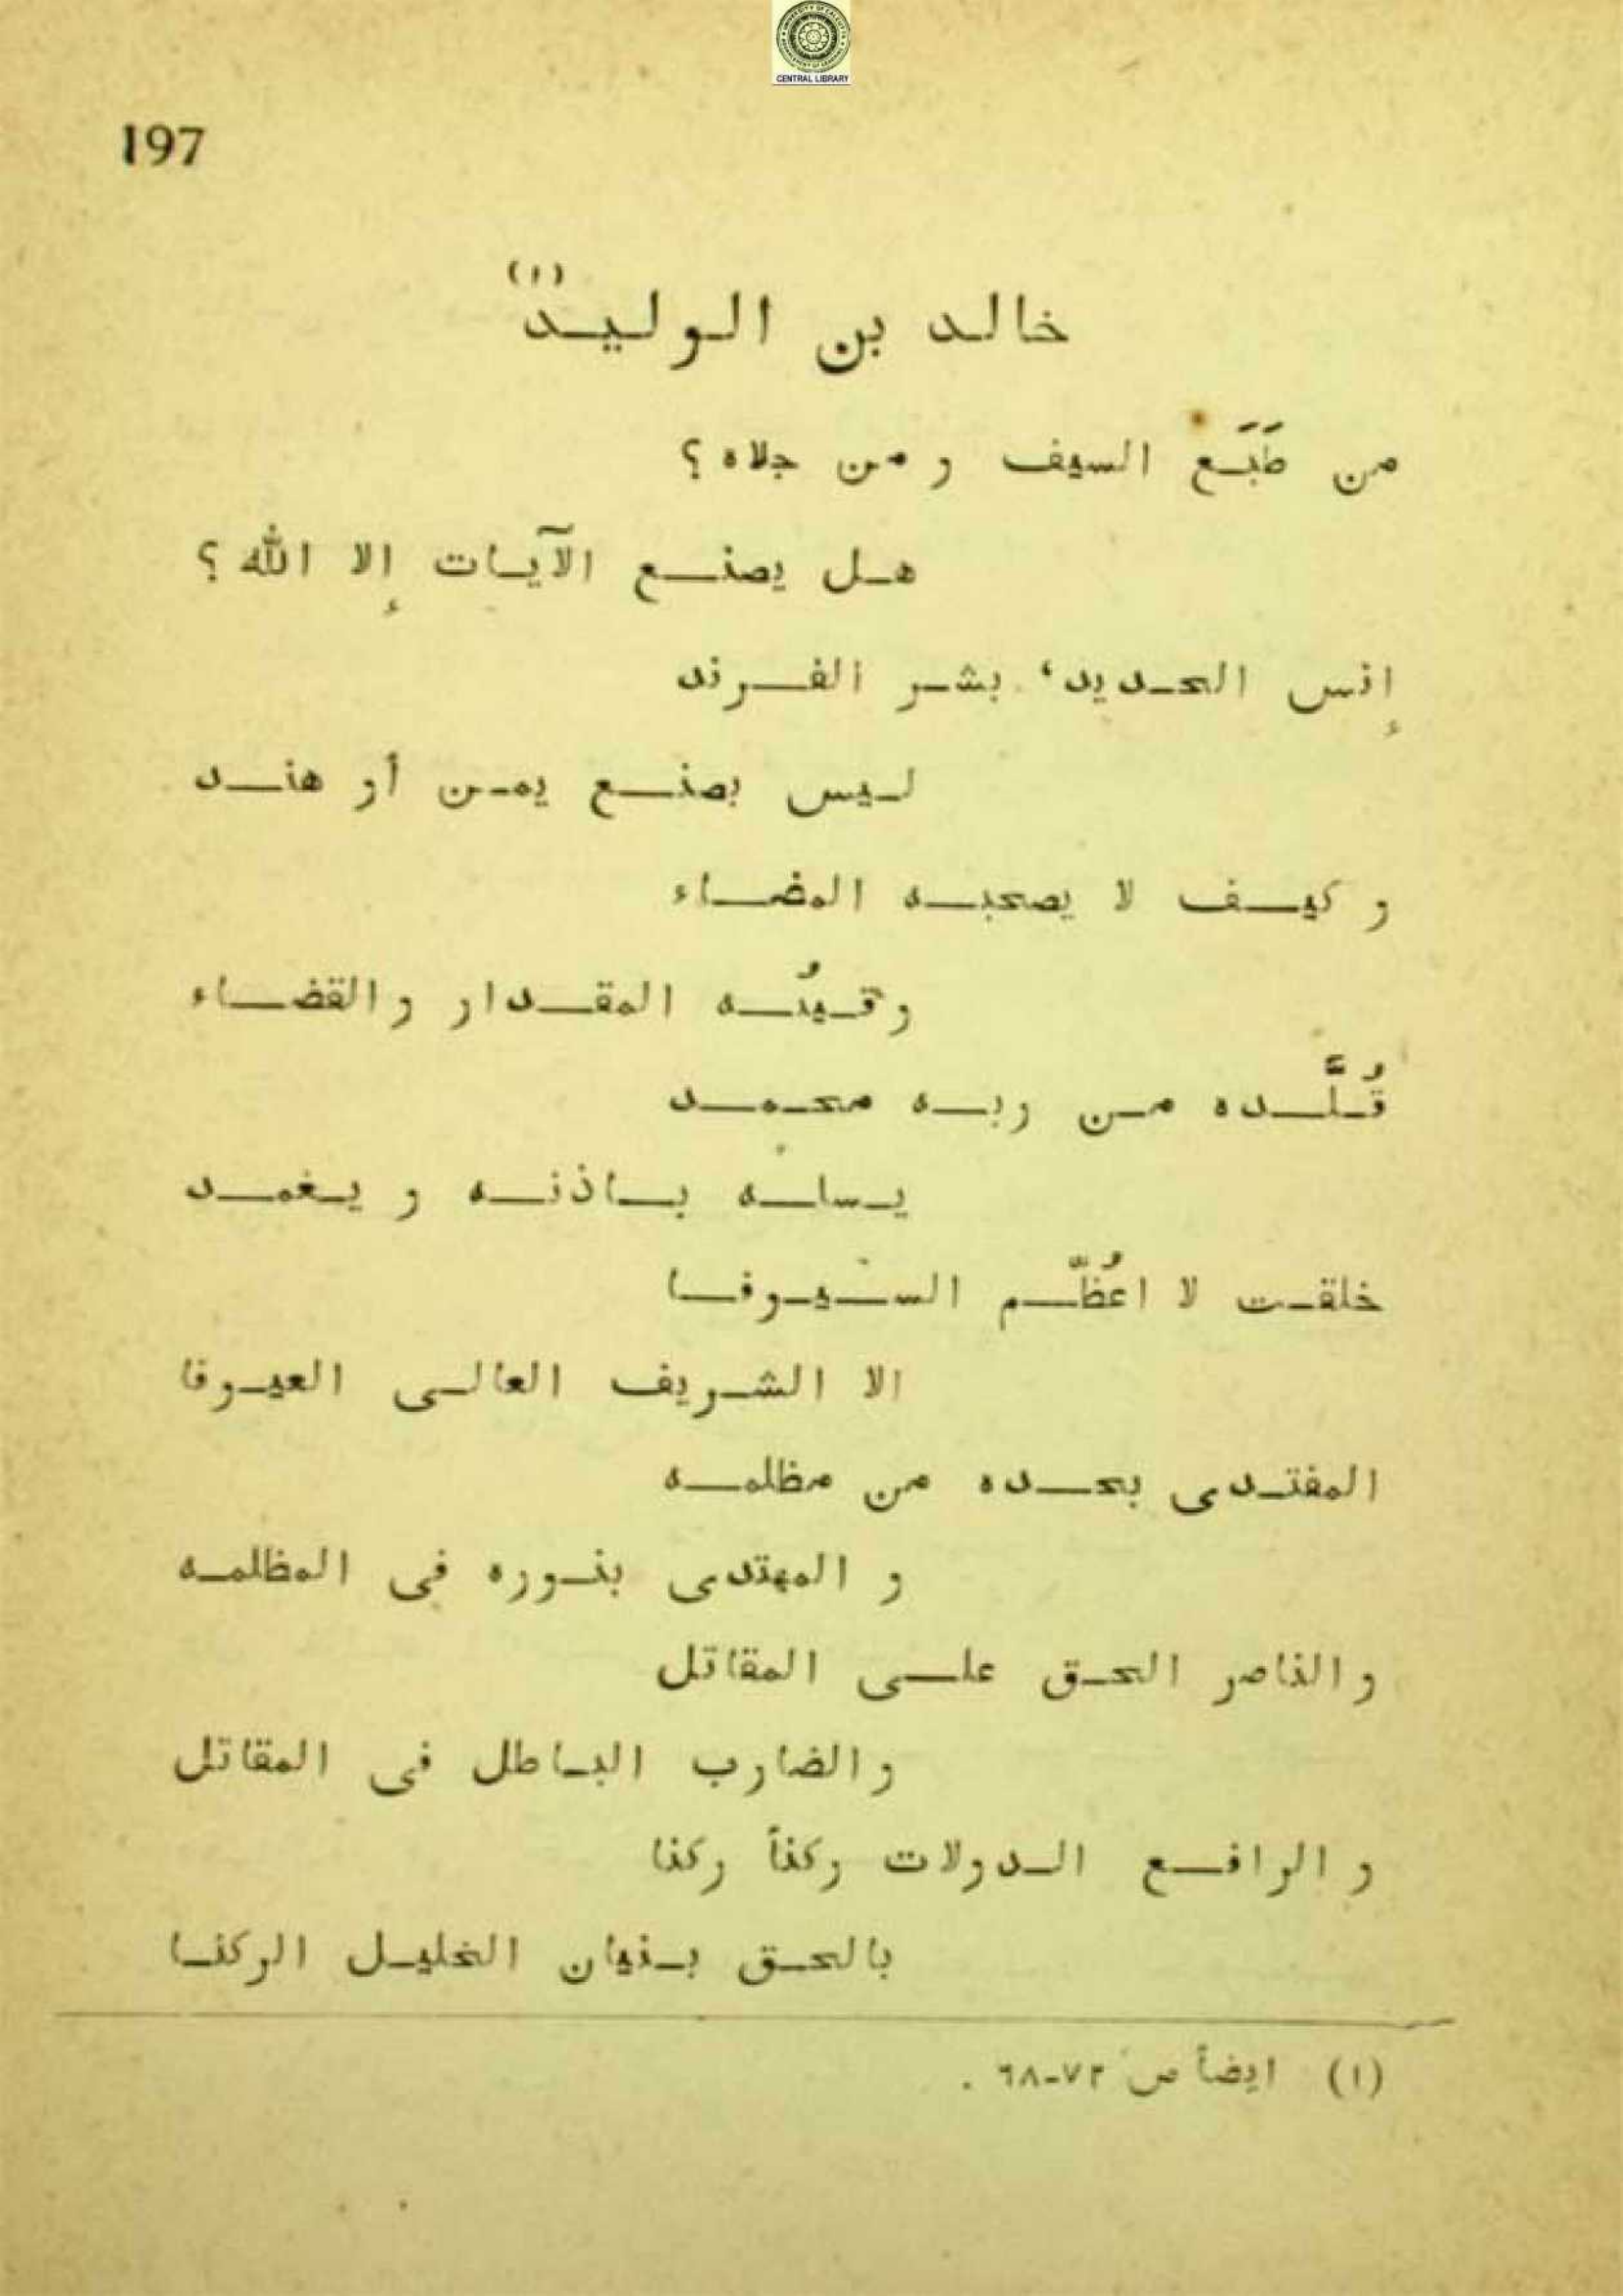 CENTRAL LIBRARY
197
خالد بن الوليد (١)
من طَبَع السيف و من جلاه ؟
هل يصنع الآيات إلا الله ؟
إنس الحديد، بشر الفرند
ليس بصنع يمن أو هند
و كيف لا يصحبه المضاء
وقينُه المقدار والقضاء
قُلَّده من ربه محمد
يسله باذنه و يغمد
خلقت لا اعُظّم السيوفا
الا الشريف العالى العيوفا
المفتدى بحده من مظلمه
و المهتدى بنوره فى المظلمه
والناصر الحق على المقاتل
والضارب الباطل فى المقاتل
و الرافع الدولات ركناً ركنا
بالحق بنيان الخليل الركنا
(١) ايضاً ص ٧٢-٦٨ .